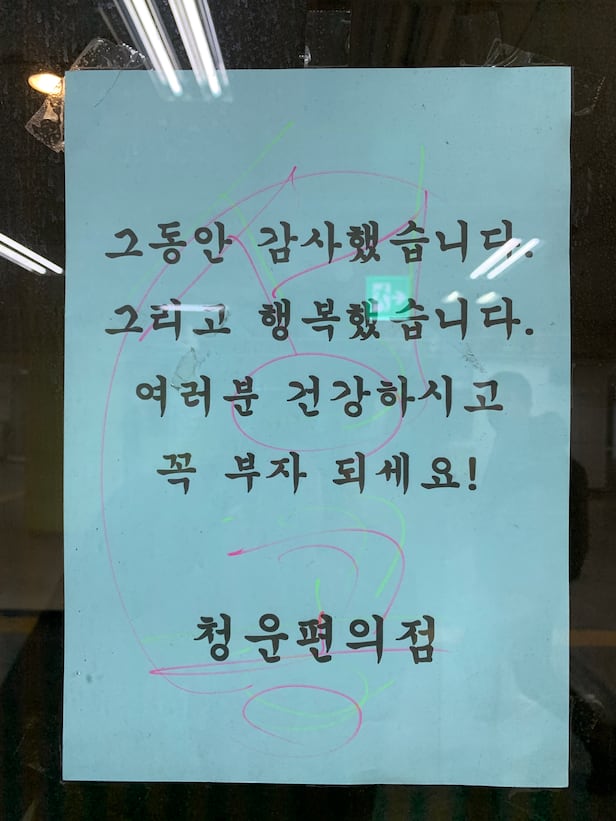 그동안 감사했습니다.
그리고 행복했습니다.
여러분 건강하시고
꼭 부자 되세요!
청운편의점